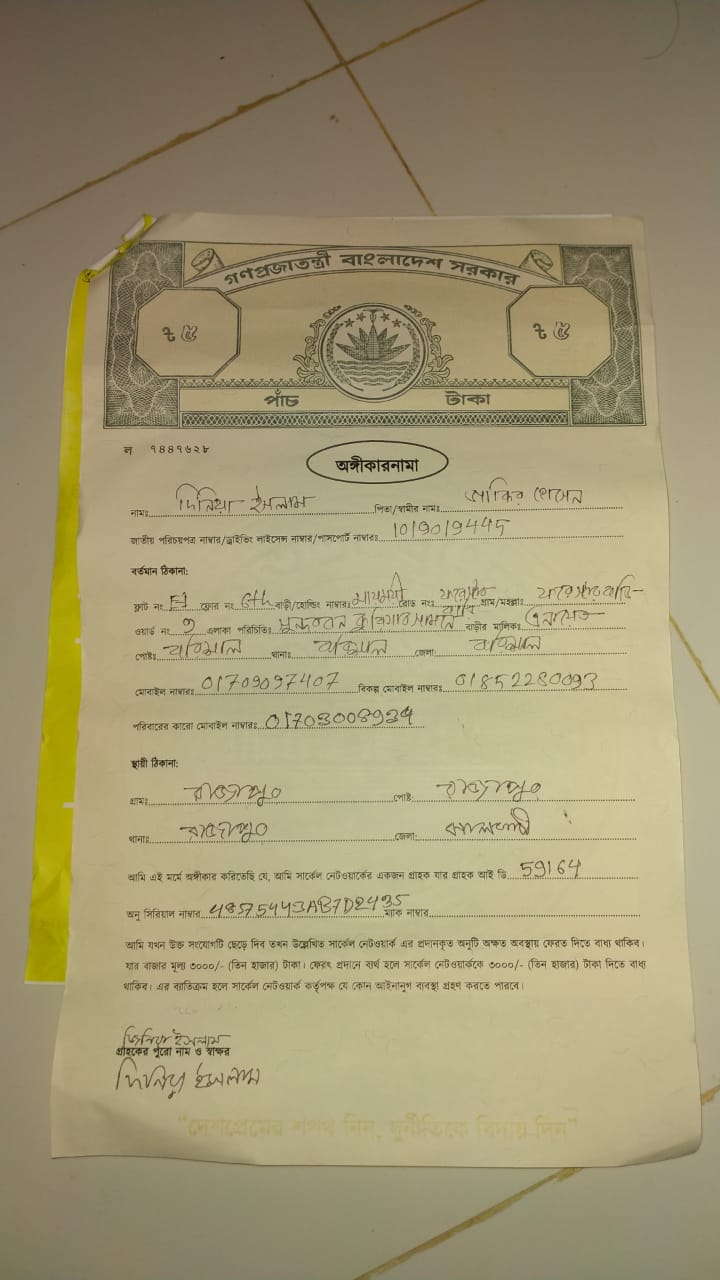 গণপ্রজাতন্ত্রী বাংলাদেশ সরকার
৳ ৫ ৳ ৫
পাঁচ টাকা
ল ৭৪৪৭৬২৮
অঙ্গীকারনামা
নামঃ দিনিয়া ইসলাম পিতা/স্বামীর নামঃ জাকির হোসেন
জাতীয় পরিচয়পত্র নাম্বার/ড্রাইভিং লাইসেন্স নাম্বার/পাসপোর্ট নাম্বারঃ 1019019445
বর্তমান ঠিকানা:
ফ্লাট নং: E1 ফ্লোর নং: 6th বাড়ী/হোল্ডিং নাম্বারঃ রোড নংঃ গ্রাম/মহল্লাঃ
ওয়ার্ড নং: এলাকা পরিচিতিঃ সুন্দরবন কুরিয়ার সামনে বাড়ীর মালিকঃ এনায়েত
পোষ্টঃ বরিশাল থানাঃ বরিশাল জেলা: বরিশাল
মোবাইল নাম্বারঃ 01709097407 বিকল্প মোবাইল নাম্বারঃ 01852280093
পরিবারের কারো মোবাইল নাম্বারঃ 01703008934
স্থায়ী ঠিকানা:
গ্রামঃ রাজাপুর পোষ্ট: রাজাপুর
থানাঃ রাজাপুর জেলা: ঝালকাঠী
আমি এই মর্মে অঙ্গীকার করিতেছি যে, আমি সার্কেল নেটওয়ার্কের একজন গ্রাহক যার গ্রাহক আই ডি 59164
অনু সিরিয়াল নাম্বার 48575443AB7D2435 ম্যাক নাম্বার
আমি যখন উক্ত সংযোগটি ছেড়ে দিব তখন উল্লেখিত সার্কেল নেটওয়ার্ক এর প্রদানকৃত অনুটি অক্ষত অবস্থায় ফেরত দিতে বাধ্য থাকিব।
যার বাজার মূল্য ৩০০০/- (তিন হাজার) টাকা। ফেরৎ প্রদানে ব্যর্থ হলে সার্কেল নেটওয়ার্ককে ৩০০০/- (তিন হাজার) টাকা দিতে বাধ্য
থাকিব। এর ব্যতিক্রম হলে সার্কেল নেটওয়ার্ক কর্তৃপক্ষ যে কোন আইনানুগ ব্যবস্থা গ্রহণ করতে পারবে।
দিনিয়া ইসলাম
গ্রাহকের পুরো নাম ও স্বাক্ষর
দিনিয়া ইসলাম
"দেশপ্রেমের শপথ নিন, দুর্নীতিকে বিদায় দিন"